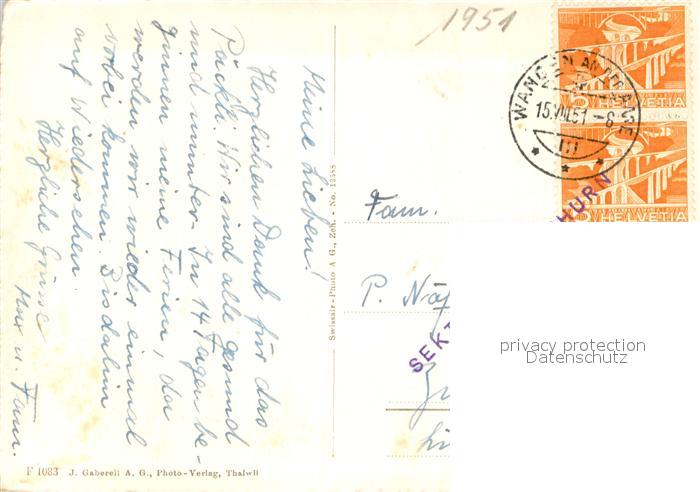 1951
HELVETIA
HELVETIA
WANGEN AN DER AARE
15.VII.51-6
Meine Lieben!
Herzlichen Dank für das
Päckli. Wir sind alle gesund
und munter. In 14 Tagen be-
ginnen meine Ferien, da
werden wir wieder einmal
vorbei kommen. Bis dahin
auf Wiedersehen
Herzliche Grüsse
u. Fam.
Swissair-Photo A G., Zch. - No. 13588
Fam.
P. Näf
SEKT
HURN
privacy protection
Datenschutz
F 1083 J. Gaberell A. G., Photo-Verlag, Thalwil